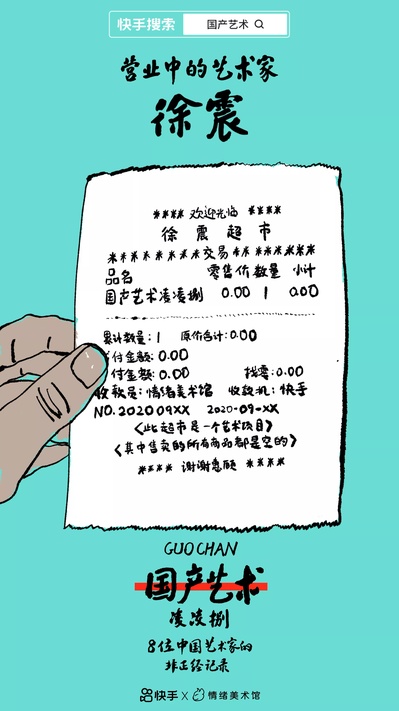 快手搜索 国产艺术
营业中的艺术家
徐震
**** 欢迎光临 ****
徐震超市
*******交易*******
品名 零售价 数量 小计
国产艺术凌凌捌 0.00 1 0.00
累计数量:1 原价合计:0.00
付金额:0.00
付金额:0.00 找零:0.00
收款员:情绪美术馆 收款机:快手
NO.202009XX 2020-09-XX
<此超市是一个艺术项目>
<其中售卖的所有商品都是空的>
**** 谢谢惠顾 ****
GUO CHAN
国产艺术
凌凌捌
8位中国艺术家的
非正经记录
快手 X 情绪美术馆